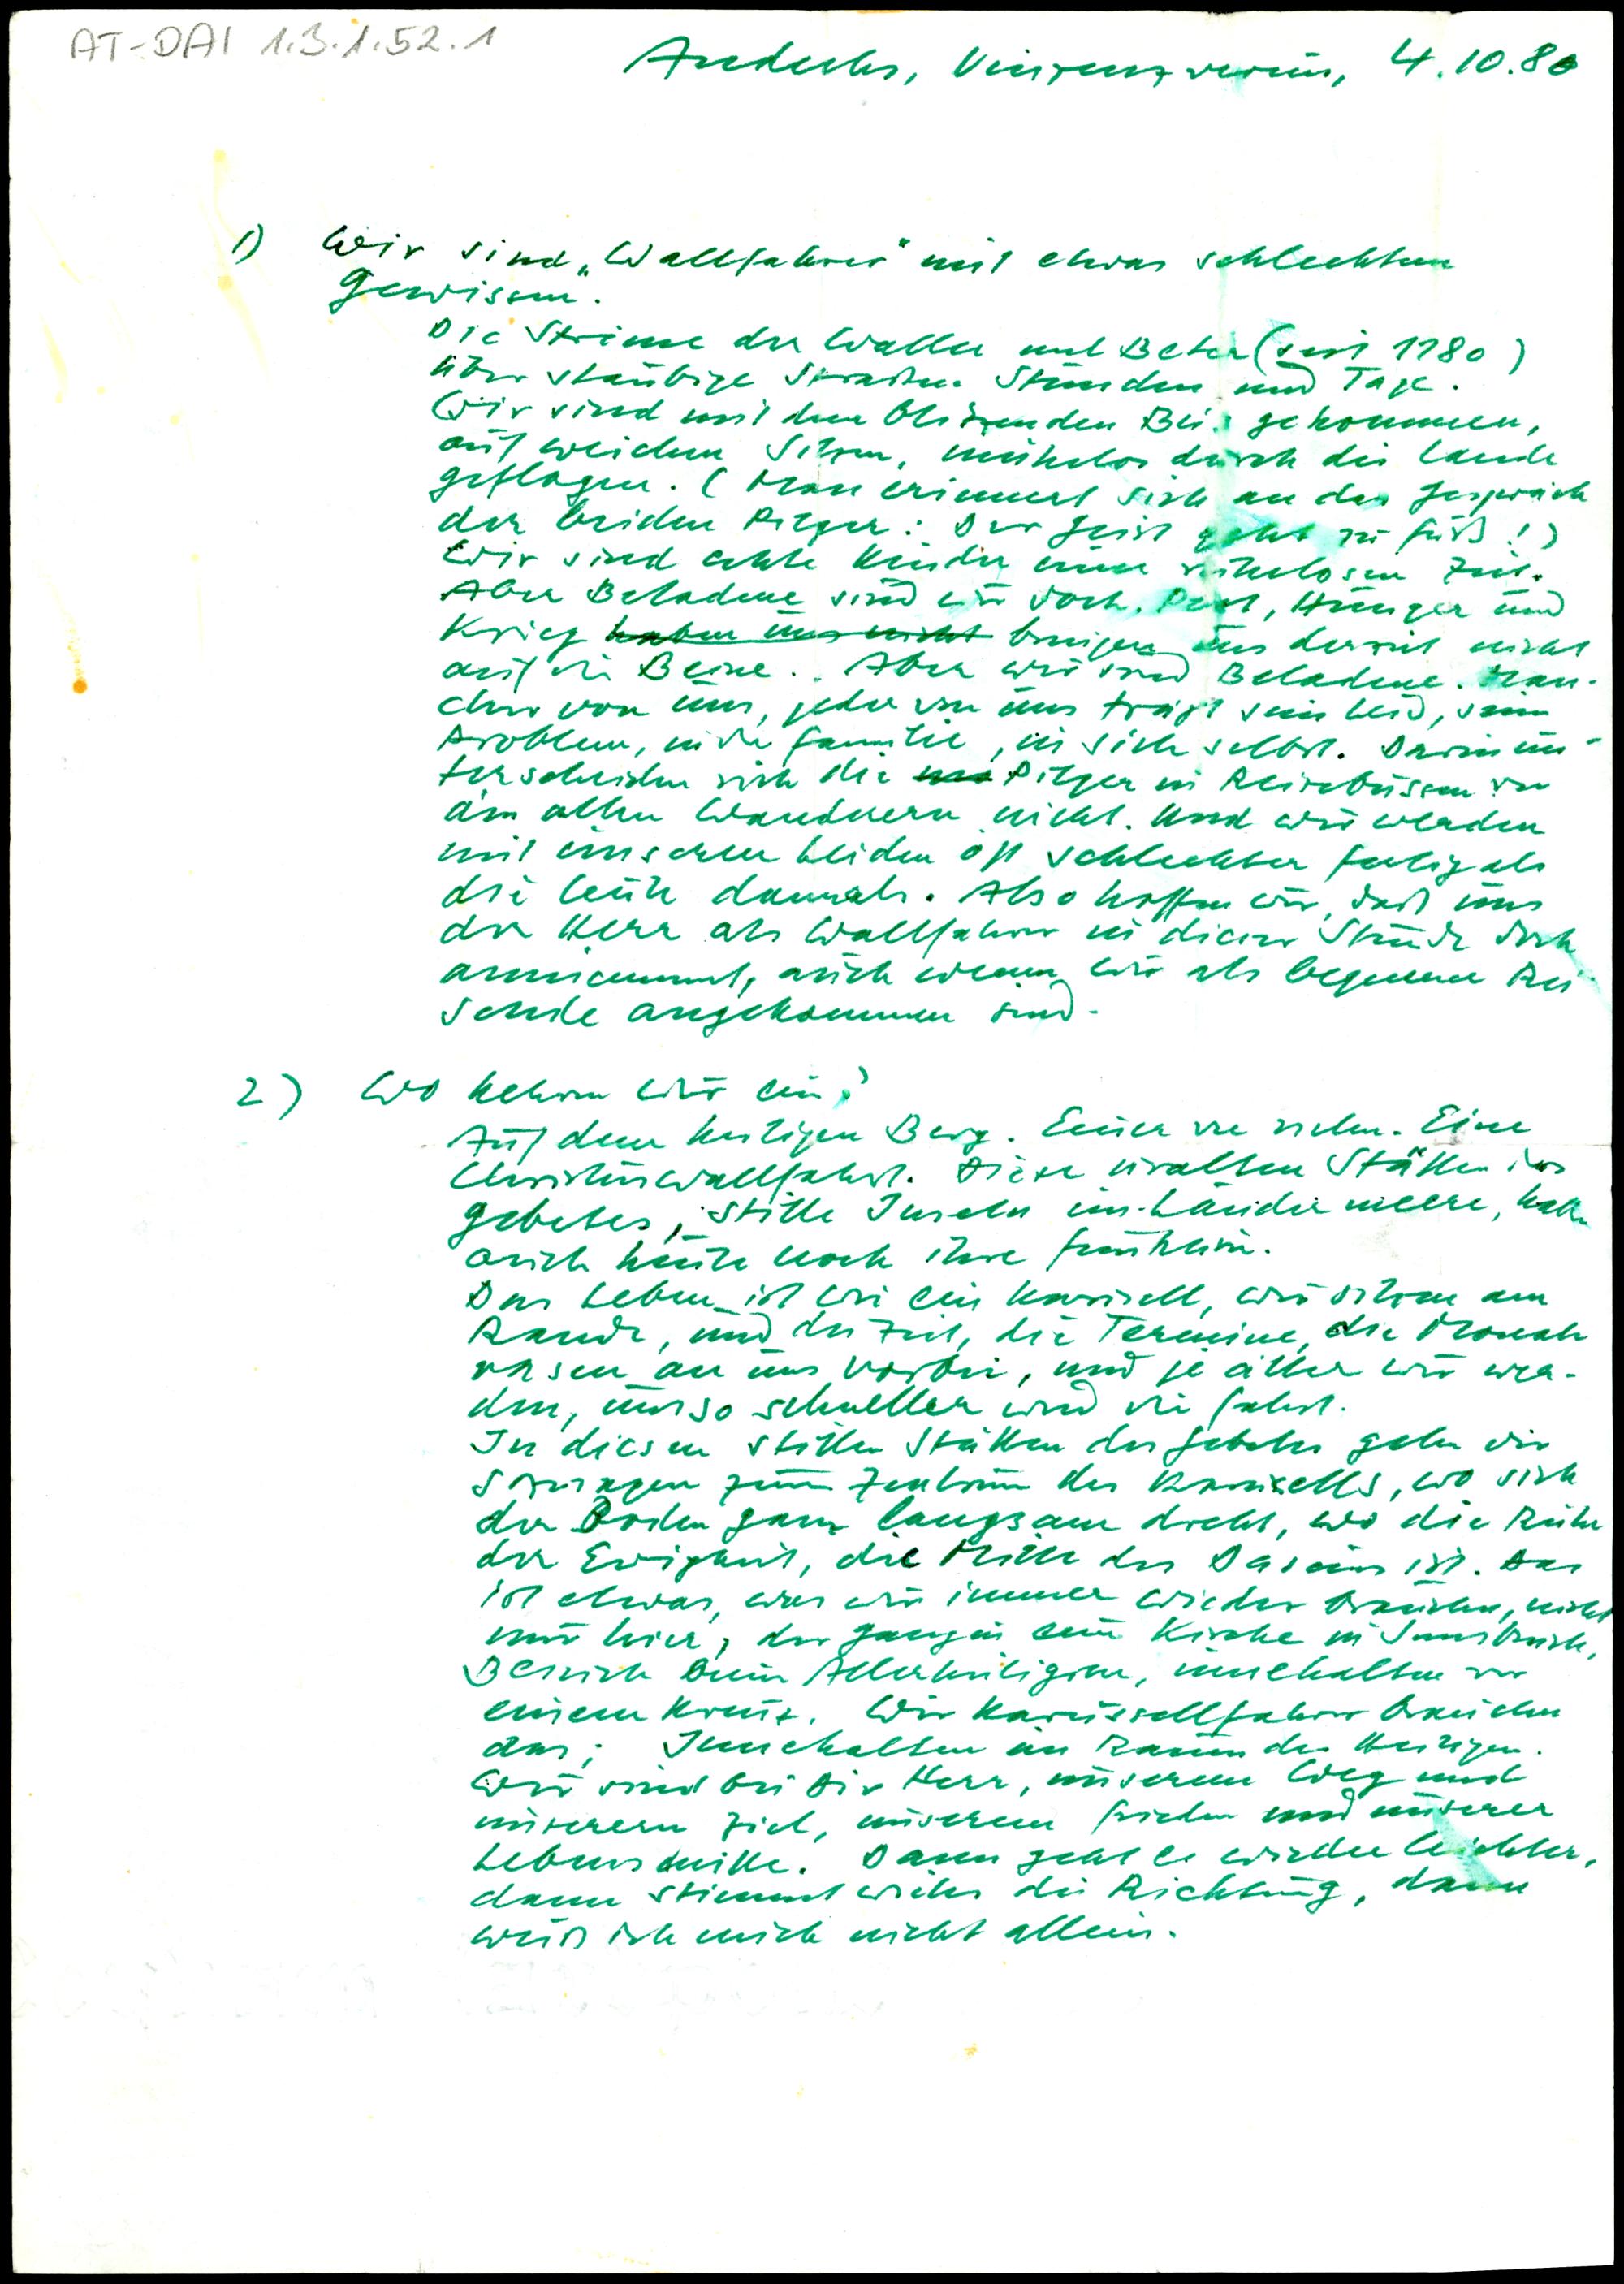 AT-DAI 1.3.1.52.1
Andechs, Vinzenzverein, 4.10.80
1) Wir sind „Wallfahrer" mit etwas schlechtem
Gewissen.
Die Ströme der Waller und Beter (seit 1180)
über staubige Straßen. Stunden und Tage.
Wir sind mit dem blitzenden Bus gekommen,
auf weichen Sitzen, mühelos durch die Lande
geflogen. (Man erinnert sich an das Gespräch
der beiden Pilger: Der Geist geht zu Fuß!)
Wir sind echte Kinder einer ruhelosen Zeit.
Aber Beladene sind wir doch. Pest, Hunger und
Krieg haben uns nicht bringen uns derzeit nicht
auf die Beine. Aber wir sind Beladene. Man-
cher von uns, jeder von uns trägt sein Leid, sein
Problem, in der Familie, in sich selbst. Darin un-
terscheiden sich die Pilger in Reisebussen von
den alten Wanderern nicht. Und wir werden
mit unseren Leiden oft schlechter fertig als
die Leute damals. Also hoffen wir, daß uns
der Herr als Wallfahrer in dieser Stunde doch
annimmt, auch wenn wir als bequeme Rei
sende angekommen sind.
2) Wo kehren wir ein?
Auf dem heiligen Berg. Einer von vielen. Eine
Christuswallfahrt. Diese uralten Stätten des
Gebetes, stille Inseln im Ländermeere, haben
auch heute noch ihre Funktion.
Das Leben ist wie ein Karusell, wir sitzen am
Rande, und die Zeit, die Termine, die Monate
rasen an uns vorbei, und je älter wir wer-
den, umso schneller wird die Fahrt.
In diesen stillen Stätten des Gebetes gehen wir
sozusagen zum Zentrum des Karusells, wo sich
der Boden ganz langsam dreht, wo die Ruhe
der Ewigkeit, die Mitte des Daseins ist. Das
ist etwas, was wir immer wieder brauchen, nicht
nur hier, der Gang in eine Kirche in Innsbruck,
Besuch beim Allerheiligsten, innehalten vor
einem Kreuz. Wir Karussellfahrer brauchen
das; Innehalten im Raum des Heiligen.
Wir sind bei Dir Herr, unserem Weg und
unserem Ziel, unserem Frieden und unserer
Lebensmitte. Dann geht es wieder leichter,
dann stimmt wieder die Richtung, dann
weiß ich mich nicht allein.